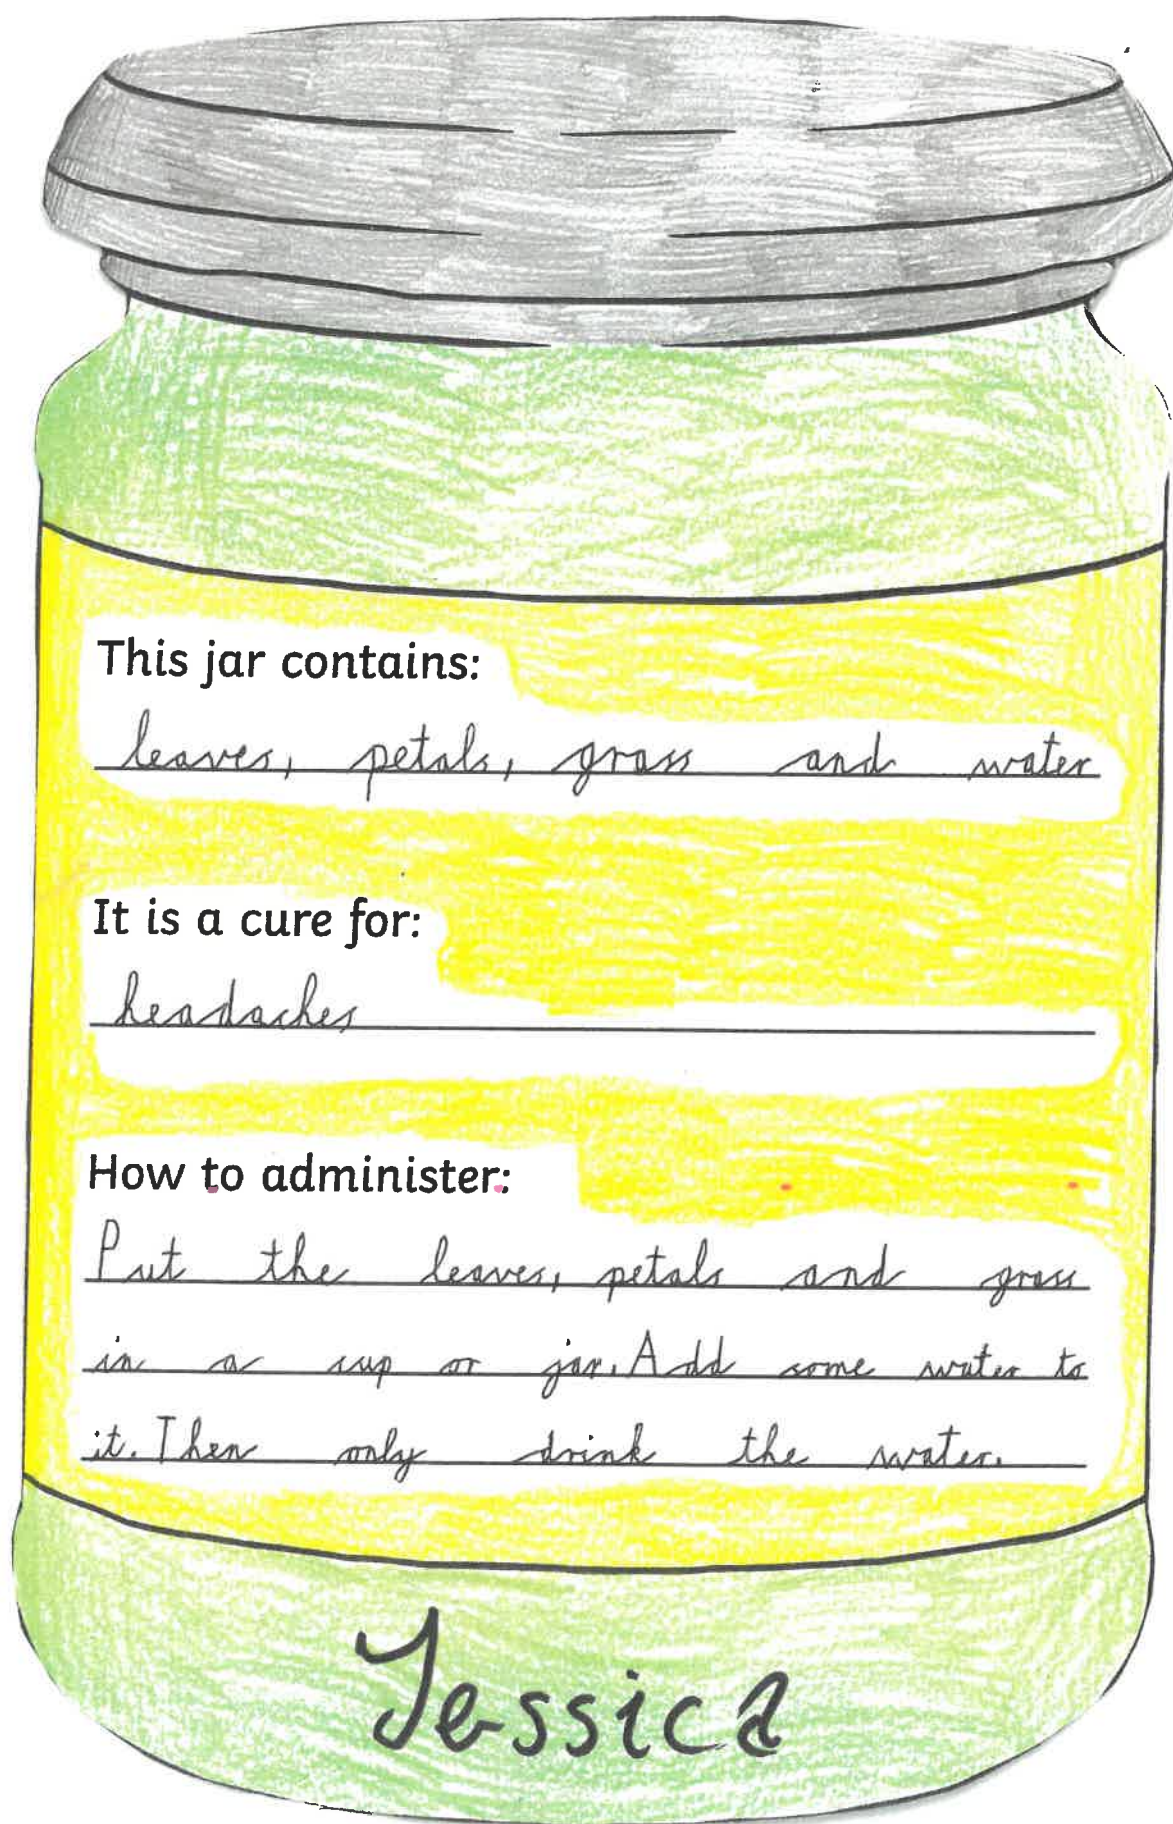 This jar contains:
leaves, petals, grass and water
It is a cure for:
headaches
How to administer:
Put the leaves, petals and grass
in a cup or jar. Add some water to
it. Then only drink the water.
Jessica